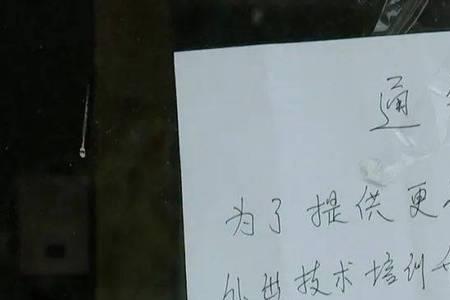 通
为了提供更
技术培训